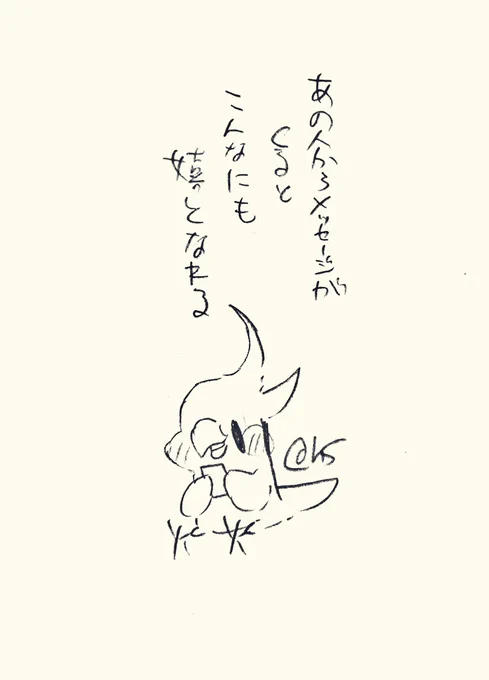 あの人からメッセージが
くると
こんなにも
嬉しとなれる